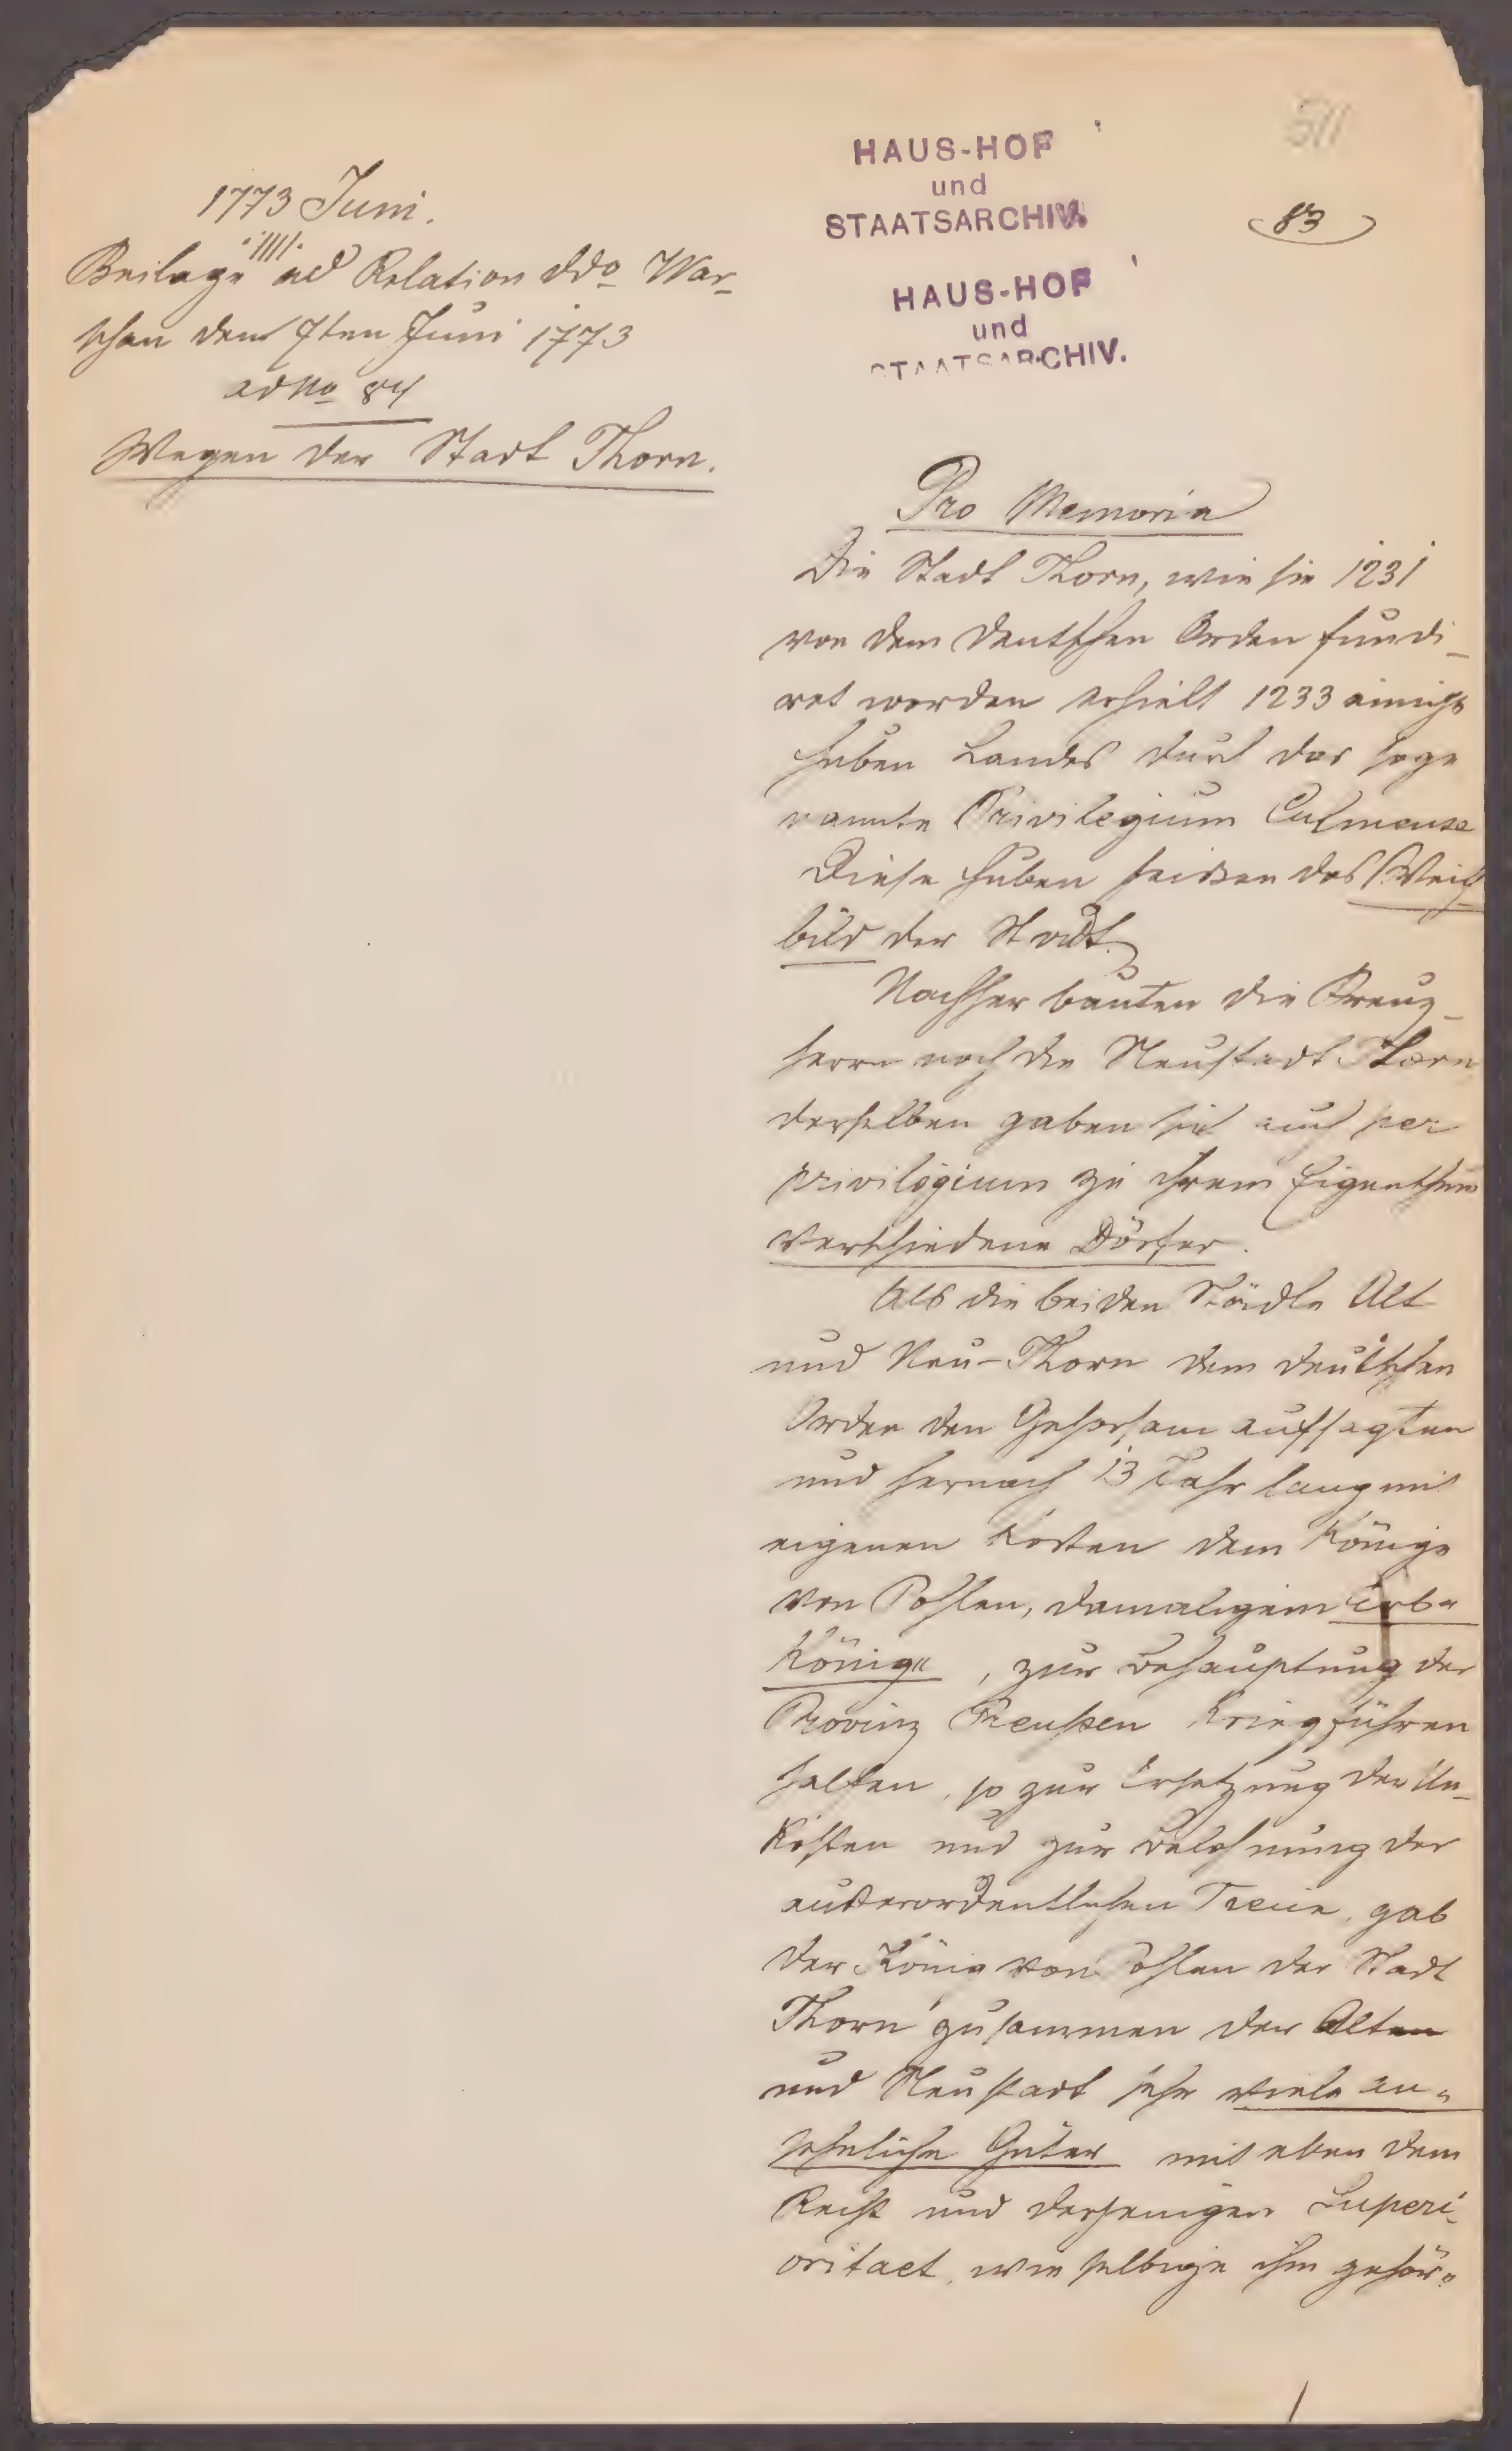 1773 Juni.
Beilage ad Relation ddo War-
schau den 7ten Juni 1773
ad No 84
Wegen der Stadt Thorn.
HAUS-HOF
und
STAATSARCHIV.
HAUS-HOF
und
STAATSARCHIV.
511
83
Pro Memoria
Die Stadt Thorn, wie sie 1231
von dem deutschen Orden fundi-
ret worden erhielt 1233 einige
Huben Landes durch das soge
nannte Privilegium Culmense
Diese Huben heissen das Weich
bild der Stadt.
Nachher bauten die Kreuz-
herrn noch die Neustadt Thorn
derselben gaben sie auch per
privilegium zu ihrem Eigenthum
verschiedene Dörfer.
Als die beiden Städte Alt
und Neu-Thorn dem deutschen
Orden den Gehorsam aufsagten
und hernach 13 Jahr lang mit
eigenen Kosten dem Könige
von Pohlen, damaligem Erb-
könige, zur Behauptung der
Provinz Preußen Krieg führen
halfen, so zur Ersetzung der Un-
kosten und zur Belohnung der
außerordentlichen Treue, gab
der König von Pohlen der Stadt
Thorn zusammen der Alten
und Neustadt sehr viele an-
sehnliche Güter mit eben dem
Recht und derjenigen Superi-
oritaet, wie selbige ihm gehör-